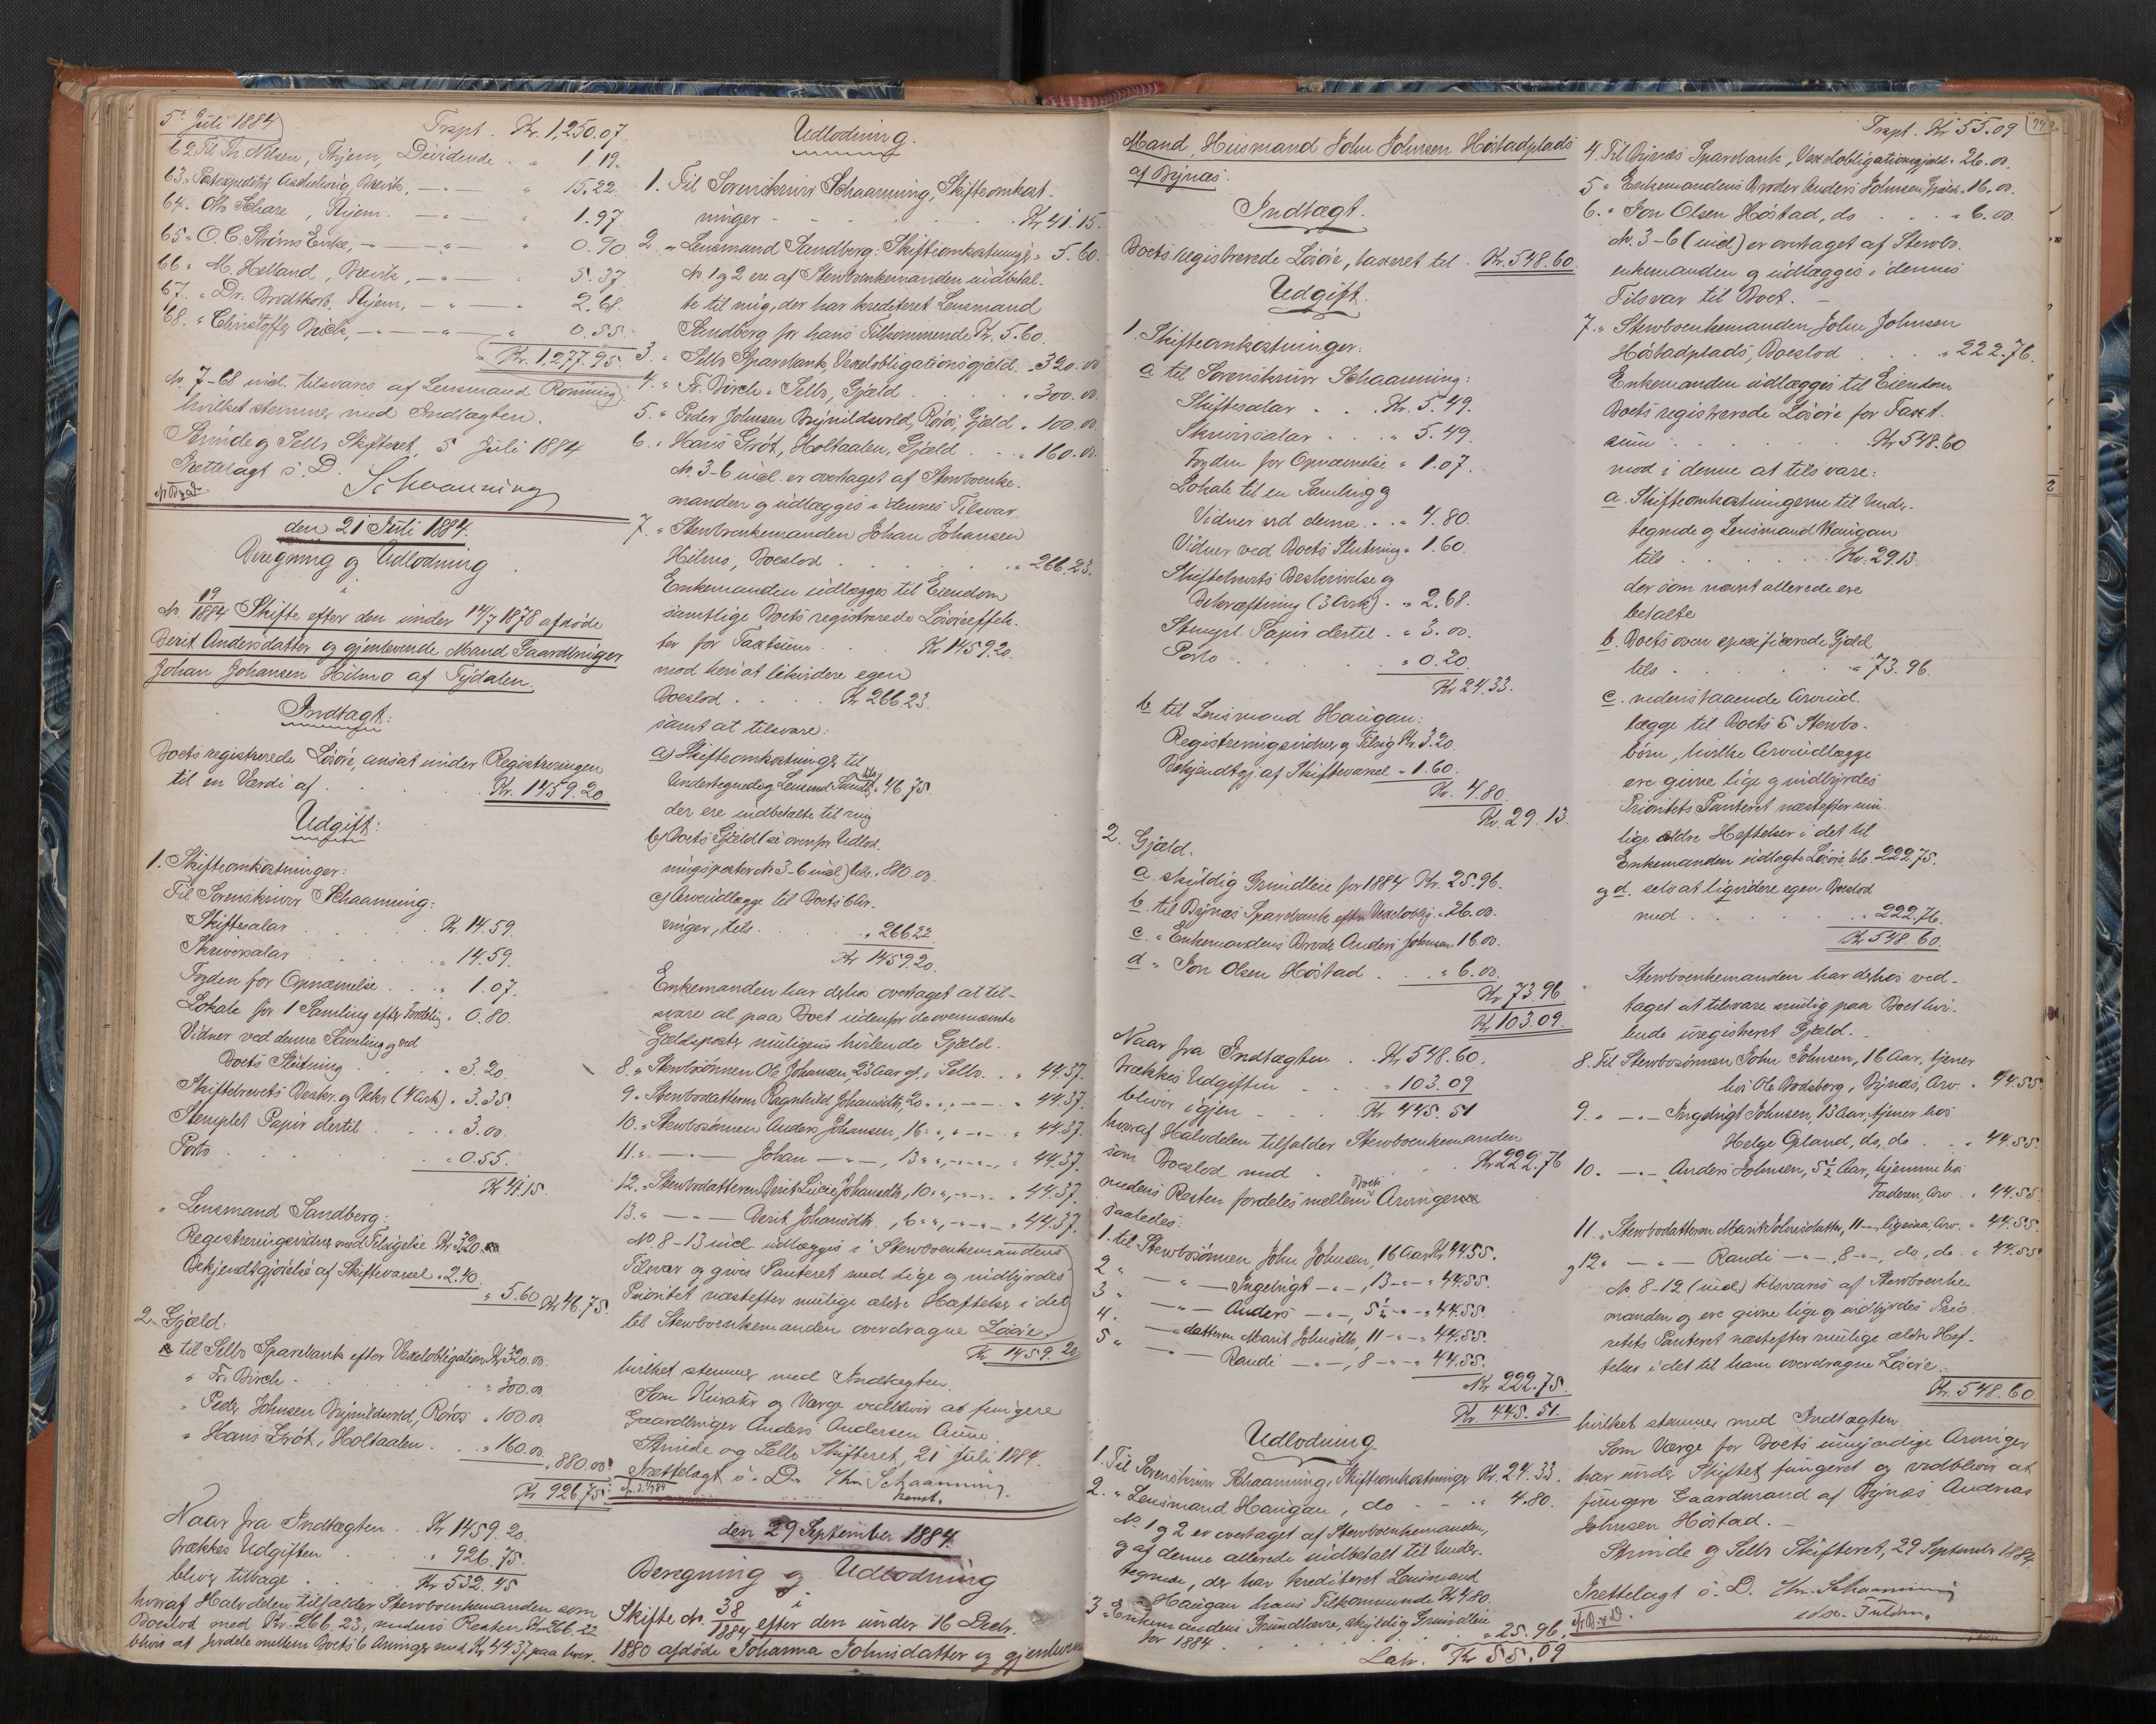 5' Juli 1884
Trspt. Kr. 1,250.07.
62 Til Th Nilsen, Thjem, Dividende " 1.19.
63 " Postexpeditør Ascheboug, Brevik, — " — " 15.22
64 " Oth Schare, Thjem. — " — " 1.97
65 " O. C. Strøms Enke, — " — " 0.90
66 " M. Helland, Brevik, — " — " 5.37
67. " Dr. Brodtkorb, Thjem, — " — " 2.68.
68. " Christoffer Brick, — " — " 0.55.
Kr. 1,277.95.
No. 7-68 incl. tilsvares af Lensmand Rønning
hvilket stemmer med Indtægten.
Strinde og Selbo Skifteret, 5 Juli 1884
Frettelagt s. D. Schaanning
den 21 Juli 1884.
Beregning og Udlodning
i
No. 19/1884 Skifte efter den under 14/7 1878 afdøde
Berit Andersdatter og gjenlevende Mand Gaardbruger
Johan Johansen Hilmo af Tydalen.
Indtægt:
Boets registrerede Løsøre, ansat under Registreringen
til en Værdi af . . . Kr. 1459.20
Udgift:
1. Skifteomkostninger:
Til Sorenskriver Schaanning:
Skiftesalær . . . Kr. 14.59.
Skriversalær . . . " 14.59.
Forden for Opnævnelse . . . " 1.07.
Lokale for 1 Samling efter Fordeling " 0.80.
Vidner ved denne Samling og ved
Boets Slutning . . . " 3.20.
Skiftebrevets Beskr. og Bekr (4 Ark) " 3.35.
Stemplet Papir dertil . . . " 3.00.
Porto . . . " 0.55.
Kr 41.15
" Lensmand Sandberg:
Registreringsvidner med Tilsigelse Kr 3.20.
Bekjendtgjørelse af Skiftevarsel " 2.40.
" 5.60 Kr 46.75.
2. Gjæld:
til Selbo Sparebank efter Vexelobligation Kr 320.00
" Fr. Birch . . . " 300.00
" Peder Johnsen Brynildsvold, Røros " 100.00
" Hans Grøt, Holtaalen . . . " 160.00
" 880.00
Kr 926.75.
Naar fra Indtægten . . Kr 1459.20.
trækkes Udgiften . . . " 926.75.
bliver tilbage . . . Kr 532.45
hvoraf Halvdelen tilfalder Stervboenkemanden som
Boeslod med Kr. 266.23, medens Resten Kr 266.22
bliver at fordele mellem Boets 6 Arvinger med Kr 44.37 paa hver.
Udlodning.
1. Til Sorenskriver Schaanning, Skifteomkost-
ninger . . . Kr 41.15.
2. " Lensmand Sandberg: Skifteomkostninger " 5.60.
No 1 og 2 ere af Stervboenkemanden indbetal-
te til mig, der har krediteret Lensmand
Sandberg for hans Tilkommende Kr. 5.60.
3. " Selbo Sparebank, Vexelobligationsgjæld " 320.00
4. " Fr. Birch " Selbo, Gjæld . . . " 300.00.
5. " Peder Johnsen Brynildsvold, Røros, Gjæld " 100.00
6. " Hans Grøt, Holtaalen, Gjæld . . . " 160.00.
No. 3-6 incl. er overtaget af Stervboenke-
manden og udlægges i dennes Tilsvar.
7. " Stervboenkemanden Johan Johansen
Hilmo, Boeslod . . . " 266.23.
Enkemanden udlægges til Eiendom
samtlige Boets registrerede Løsøreeffek-
ter for Taxtsum . . Kr 1459.20.
mod heri at likvidere egen
Boeslod . . . Kr 266.23.
samt at tilsvare:
a) Skifteomkostninger til
Undertegnede og Lensmd Sandberg tils " 46.75
der ere indbetalte til mig
b) Boets Gjæld (se ovenfor Udlod-
ningsposter No 3-6 incl) tils. " 880.00.
c) Arveudlægge til Boets 6 Ar-
vinger, tils. . . " 266.22
Kr 1459.20.
Enkemanden har derhos overtaget at til-
svare al paa Boet udenfor de ovennævnte
Gjældsposter muligens hvilende Gjæld.
8. " Stervbosønnen Ole Johansen, 23 Aar gl, i Selbo . . " 44.37.
9. " Stervbodatteren Ragnhild Johansdtr, 20 " ", — " — " 44.37.
10. " Stervbosønnen Anders Johansen, 16 " ", — " — " 44.37.
11. " — " — Johan — " —, 13 " ", — " — " 44.37.
12. " Stervbodatteren Berit Lucie Johansdtr, 10 " ", — " — " 44.37.
13. " — " — Berit Johansdtr., 6 " ", — " — " 44.37.
No. 8-13 incl. udlægges i Stervboenkemandens
Tilsvar og gives Panteret med lige og indbyrdes
Prioritet næstefter mulige ældre Hæftelser i det
til Stervboenkemanden overdragne Løsøre.
Kr 1459.20
hvilket stemmer med Indtægten.
Som Kurator og Værge vedbliver at fungere
Gaardbruger Anders Andersen Aune.
Strinde og Selbo Skifteret, 21 Juli 1884.
Frettelagt s. D. Chr. Schaanning
const.
den 29 September 1884.
Beregning og Udlodning
i
Skifte No. 38/1884 efter den under 16 Decbr.
1880 afdøde Johanna Johnsdatter og gjenlevende
Mand, Husmand John Johnsen Høstadplads
af Bynæs.
Indtægt.
Boets registrerede Løsøre, taxeret til . Kr. 548.60.
Udgift.
1. Skifteomkostninger:
a til Sorenskriver Schaanning:
Skiftesalær . . . Kr. 5.49.
Skriversalær . . . " 5.49.
Forden for Opnævnelse " 1.07.
Lokale til en Samling og
Vidner ved denne . . . " 4.80.
Vidner ved Boets Slutning " 1.60.
Skiftebrevets Beskrivelse og
Bekræftning (3 Ark) . " 2.68.
Stempl. Papir dertil . " 3.00.
Porto . . . " 0.20.
Kr 24.33.
b til Lensmand Haugan:
Registreringsvidner og Tilsig Kr. 3.20.
Bekjendtgj. af Skiftevarsel " 1.60.
Kr. 4.80.
Kr. 29.13.
2. Gjæld.
a. skyldig Grundleie for 1884 Kr. 25.96.
b. til Bynæs Sparebank efter Vexeloblig. " 26.00.
c. " Enkemandens Broder Anders Johnsen 16.00.
d " Jon Olsen Høstad . . . " 6.00.
Kr 73.96
Kr 103.09.
Naar fra Indtægten . . Kr 548.60.
trækkes Udgiften . . . " 103.09
bliver igjen . . . Kr 445.51
hvoraf Halvdelen tilfalder Stervboenkemanden
som Boeslod med . . . Kr 222.76
medens Resten fordeles mellem Boets Arvinger
saaledes:
1. til Stervbosønnen John Johnsen, 16 Aar Kr 44.55.
2 " — " — Ingebrigt — " —, 13 — " — " 44.55.
3 " — " — Anders — " —, 5½ — " — " 44.55.
4. " — " datteren Marit Johnsdtr, 11 — " — " 44.55.
5 " — " — Randi — " —, 8 — " — " 44.55.
Kr 222.75.
Kr. 445.51.
Udlodning.
1. Til Sorenskriver Schaanning, Skifteomkostninger Kr. 24.33.
2. " Lensmand Haugan, do — — " 4.80.
No. 1 og 2 er overtaget af Stervboenkemanden,
og af denne allerede indbetalt til Under-
tegnede, der har krediteret Lensmand
Haugan hans Tilkommende Kr 4.80.
3 " Enkemandens Grundherre, skyldig Grundleie
for 1884 . . . " 25.96.
Lat. Kr 55.09
Trspt. Kr 55.09
4. Til Bynæs Sparebank, Vexelobligationsgjæld " 26.00.
5 " Enkemandens Broder Anders Johnsen, Gjæld " 16.00.
6. " Jon Olsen Høstad, do . . . " 6.00.
No. 3-6 (incl) er overtaget af Stervbo-
enkemanden og udlægges i dennes
Tilsvar til Boet. —
7. " Stervboenkemanden John Johnsen
Høstadplads, Boeslod . . . " 222.76.
Enkemanden udlægges til Eiendom
Boets registrerede Løsøre for Taxt-
sum . . . Kr 548.60
mod i denne at tilsvare:
a. Skifteomkostningerne til Under-
tegnede og Lensmand Haugan
tils . . . Kr. 29.13.
der som nævnt allerede ere
betalte
b. Boets oven specificerede Gjæld
tils . . . " 73.96.
c. nedenstaaende Arveud-
lægge til Boets 5 Stervbo-
børn, hvilke Arveudlægge
ere givne lige og indbyrdes
Prioritets Panteret næstefter mu-
lige ældre Heftelser i det til
Enkemanden udlagte Løsøre, tils. 222.75.
og d. selv at liqvidere egen Boeslod
med . . . " 222.76.
Kr 548.60.
Stervboenkemanden har derhos ved-
taget at tilsvare mulig paa Boet hvi-
lende uregistreret Gjæld. —
8. Til Stervbosønnen John Johnsen, 16 Aar, tjener
hos Ole Brodsberg, Bynæs, Arv " 44.55
9. " — " — Ingebrigt Johnsen, 13 Aar, tjener hos
Helge Opland, do, do . . " 44.55.
10. " — " — Anders Johnsen, 5½ Aar, hjemme hos
Faderen, Arv . " 44.55
11. " Stervbodatteren Marit Johnsdatter, 11 — " — ligesaa, Arv. " 44.55.
og 12 " — " — Randi — " —, 8 — " —, do, do. " 44.55
No 8-12 (incl.) tilsvares af Stervboenke-
manden og ere givne lige og indbyrdes Prio-
ritets Panteret næstefter mulige ældre Hef-
telser i det til ham overdragne Løsøre.
Kr. 548.60
hvilket stemmer med Indtægten.
Som Værge for Boets umyndige Arvinger
har under Skiftet fungeret og vedbliver at
fungere Gaardmand af Bynæs Andreas
Johnsen Høstad. —
Strinde og Selbo Skifteret, 29 September 1884
Frettelagt s. D. Chr. Schaanning